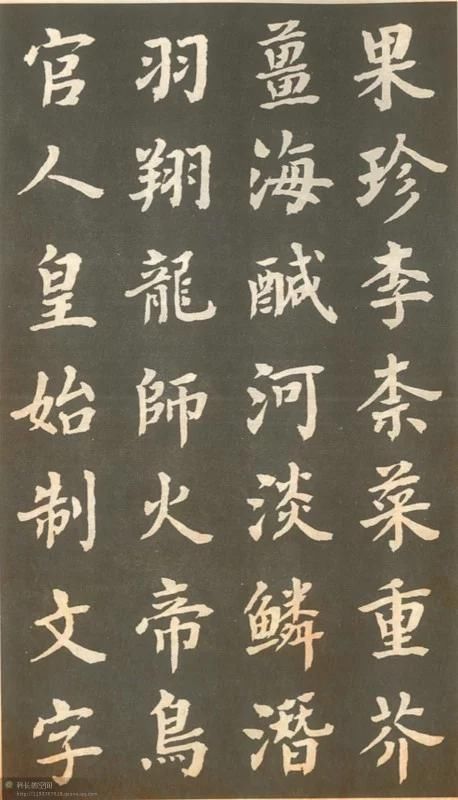 果珍李柰菜重芥
薑海醎河淡鱗潛
羽翔龍師火帝鳥
官人皇始制文字
科长的空间